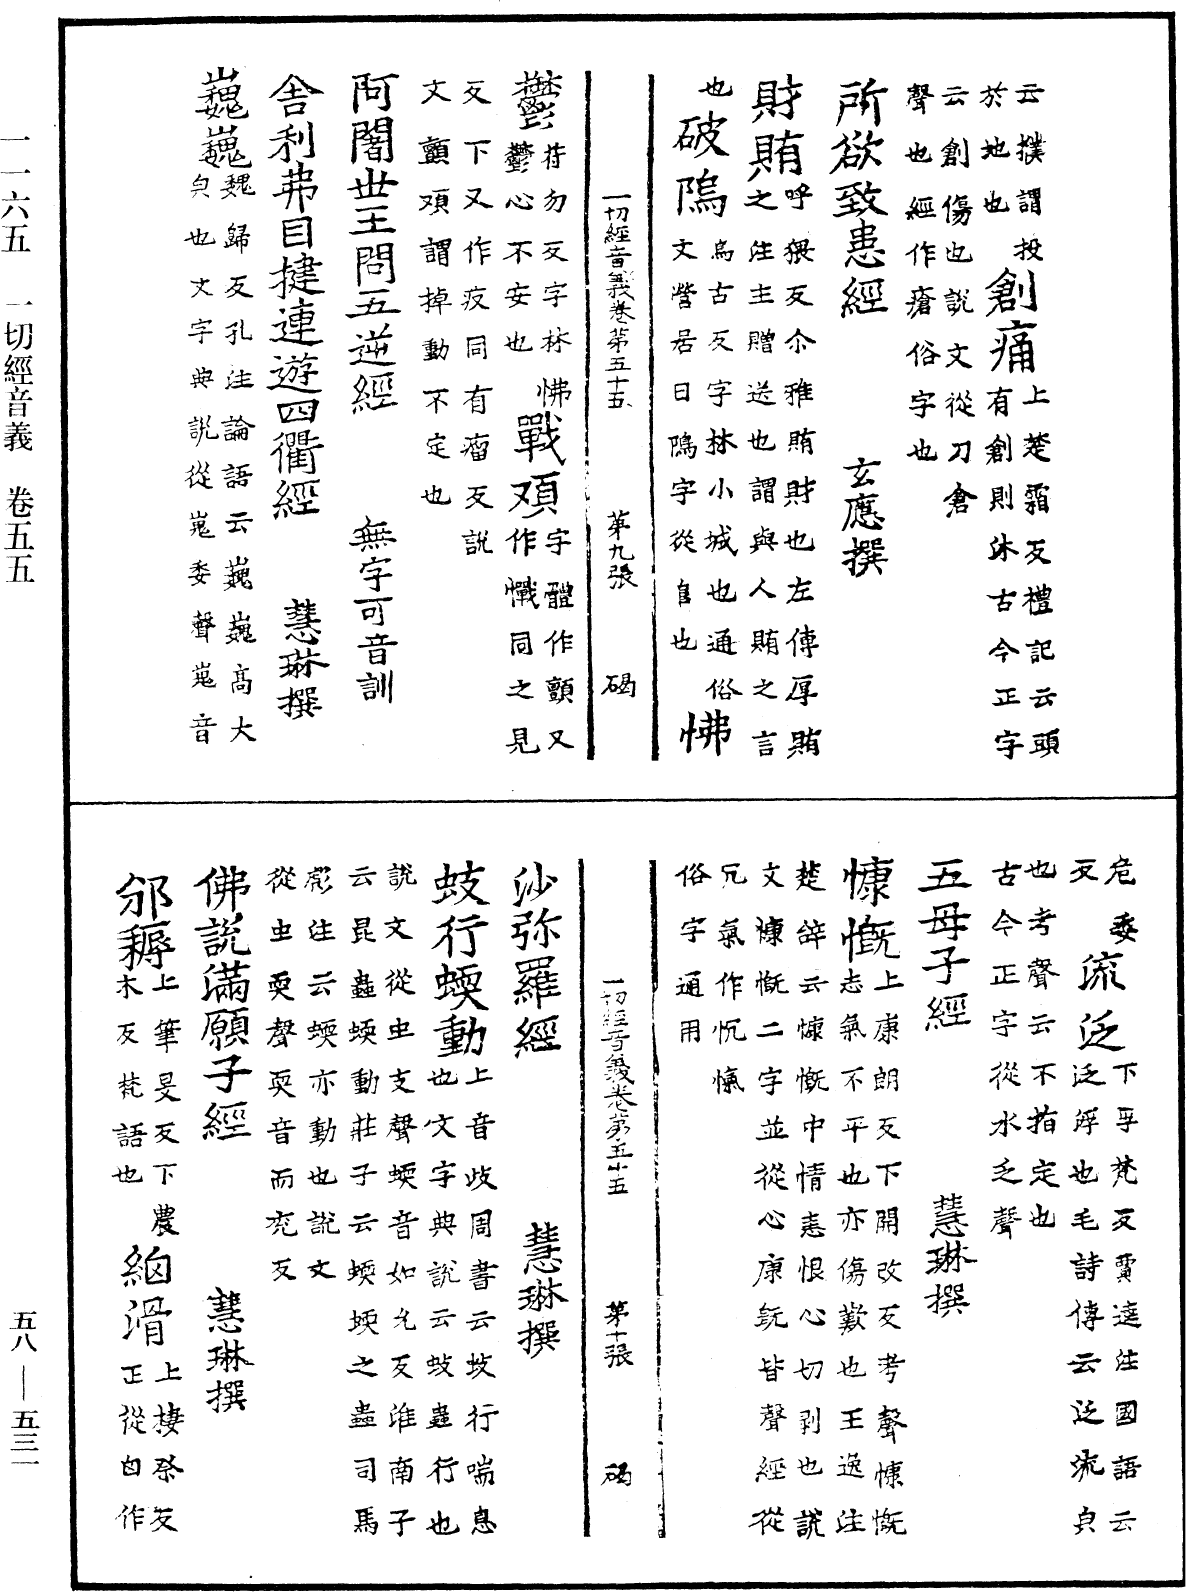 一一六五　一切經音義　卷五五
五八—五三一
云撲謂投
於地也
創痛
上楚霜反禮記云頭
有創則沐古今正字
云創傷也說文從刀倉
聲也經作瘡俗字也
所欲致患經　玄應撰
財賄
呼猥反尒雅賄財也左傳厚賄
之注主贈送也謂與人賄之言
也
破隖
烏古反字林小城也通俗
文營居曰隖字從𨸏也
怫
一切經音義卷第五十五　第九張　碣
鬱
苻勿反字林怫
鬱心不安也
戰頄
字體作顫又
作懺同之見
反下又作疫同有瘤反說
文顫頄謂掉動不定也
阿闍世王問五逆經　無字可音訓
舍利弗目揵連遊四衢經　慧琳撰
巍巍
魏歸反孔注論語云巍巍高大
皃也文字典說從嵬委聲嵬音
危委
反
流泛
下孚梵反賈逵注國語云
泛浮也毛詩傳云泛流皃
也考聲云不指定也
古今正字從水乏聲
五母子經　慧琳撰
慷慨
上康朗反下開改反考聲慷慨
志氣不平也亦傷歎也王逸注
楚辭云慷慨中情恚恨心切剥也說
文慷慨二字並從心康旣皆聲經從
冗氣作忼愾
俗字通用
一切經音義卷第五十五　第十張　碣
沙弥羅經　慧琳撰
蚑行蝡動
上音歧周書云蚑行喘息
也文字典說云蚑蟲行也
說文從虫支聲蝡音如允反淮南子
云昆蟲蝡動莊子云蝡蝡之蟲司馬
彪注云蝡亦動也說文
從虫耎聲耎音而兖反
佛說滿願子經　慧琳撰
邠耨
上筆旻反下農
木反梵語也
細滑
上棲祭反
正從囟作